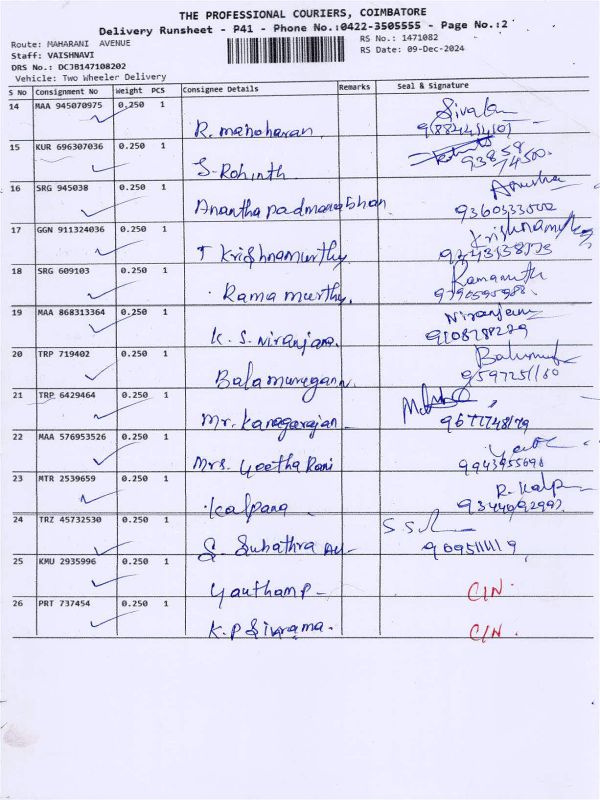 THE PROFESSIONAL COURIERS, COIMBATORE
Delivery Runsheet - P41 - Phone No.:0422-3505555 - Page No.:2
Route: MAHARANI AVENUE
RS No.: 1471082
Staff: VAISHNAVI
RS Date: 09-Dec-2024
DRS No.: DCJB147108202
Vehicle: Two Wheeler Delivery
S No Consignment No Weight PCS Consignee Details Remarks Seal & Signature
14 MAA 945070975 0.250 1 R. manoharan
15 KUR 696307036 0.250 1 S. Rohinth 93858 74500
16 SRG 945038 0.250 1 Anantha padmanabhan 9360333502
17 GGN 911324036 0.250 1 T Krishnamurthy
18 SRG 609103 0.250 1 Rama murthy.
19 MAA 868313364 0.250 1 K. S. Niranjana. Niranjana
20 TRP 719402 0.250 1 Balamurugann. 9597251160
21 TRP 6429464 0.250 1 Mr. Kanagarajan
22 MAA 576953526 0.250 1 Mrs. Geetha Rani 9943955696
23 MTR 2539659 0.250 1 Kalpana R. Kalp
24 TRZ 45732530 0.250 1 S. Subathra
25 KMU 2935996 0.250 1 Gautham P- C/N.
26 PRT 737454 0.250 1 K. P Sivarama. C/N.